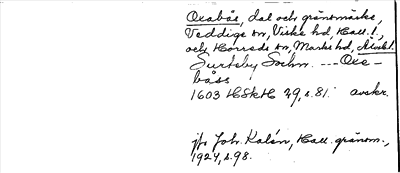 Oxabås, dal och gränsmärke,
Veddige sn, Viske hd, Hall. l.,
och Horreds sn, Marks hd, Älvsb. l.
Surteby Sochn. --- Oxe-
båss
1603 HSkH 29, s. 81. avskr.
jfr Joh. Kalén, Hall. gränsm.,
1924, s. 98.